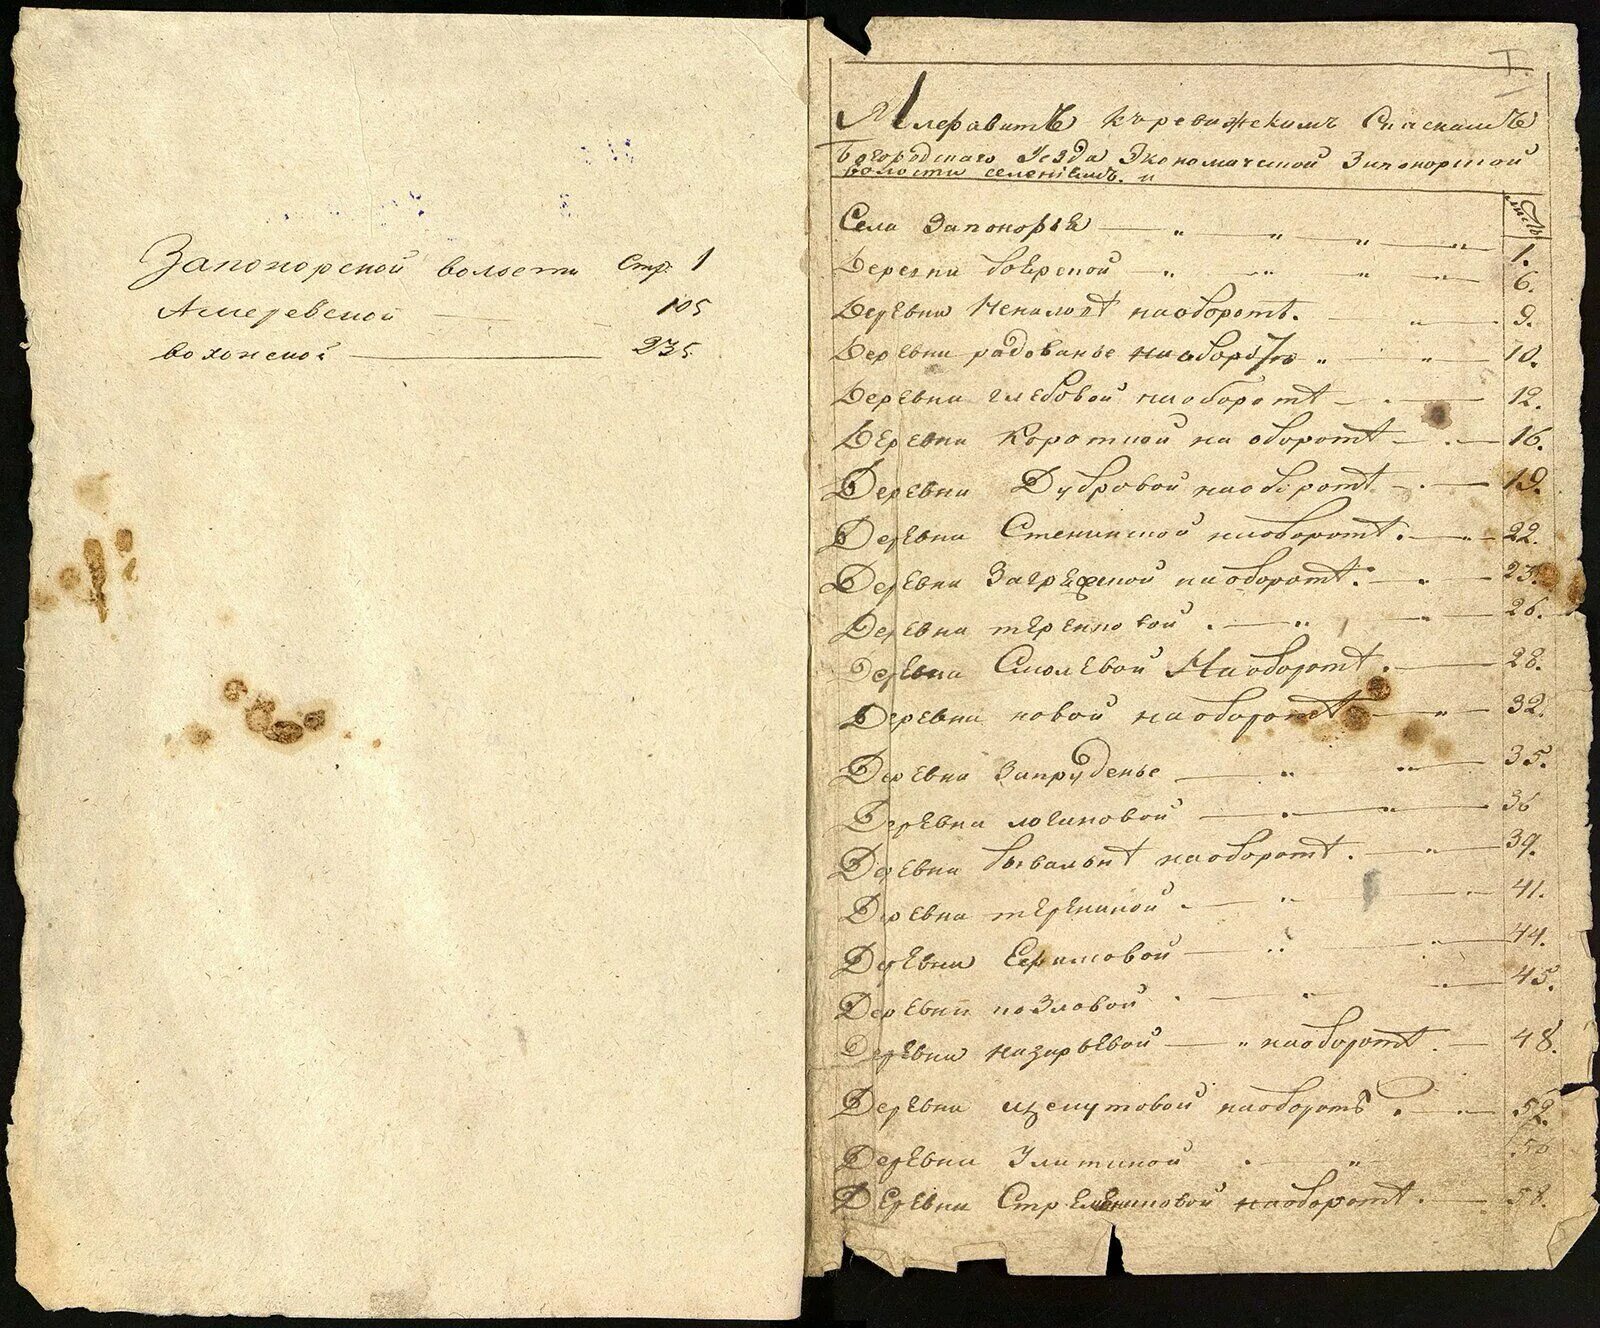 Запонорской волости Стр. 1
Амеревской 105
вохонской 235
I.
Алфавитъ къ ревижскимъ Скаскамъ
Богородскаго Уезда Экономической Запонорской
волости селениямъ.
листы
Села Запонорья 1.
Деревни боярской 6.
Деревни на оборотъ. 9.
Деревни радованье на оборотъ 10.
Деревни глебовой на оборотѣ 12.
Деревни Короткой на оборотѣ 16.
Деревни Дубровой на оборотѣ 19.
Деревни Стенинской на оборотѣ. 22.
Деревни Загряжской на оборотѣ. 23.
Деревни теренковой 26.
Деревни Смолевой На оборотѣ. 28.
Деревни новой на оборотѣ 32.
Деревни Запруденье 35.
Деревни логиновой 36
Деревни на оборотѣ. 39.
Деревни терениной 41.
Деревни 44.
Деревни козловой 45.
Деревни назарьевой на оборотѣ. 48.
Деревни щекутовой на оборотѣ 52.
Деревни Улитиной
Деревни на оборотѣ. 58.